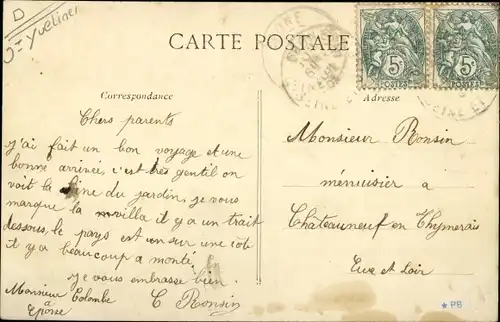 D
J = Yvelines
CARTE POSTALE
5c
POSTES
5c
POSTES
SEINE ET
Correspondance
Adresse
Chers parents
j'ai fait un bon voyage et une
bonne arrivée, c'est très gentil on
voit la Seine du jardin je vous
marque la villa il y a un trait
dessous. le pays est en sur une cote
il y a beaucoup a monté
je vous embrasse bien
C Ronsin
Monsieur Colombe
a
Epone
Monsieur Ronsin
menuisier a
Chateauneuf en Thymerais
Eure et Loir
* PB